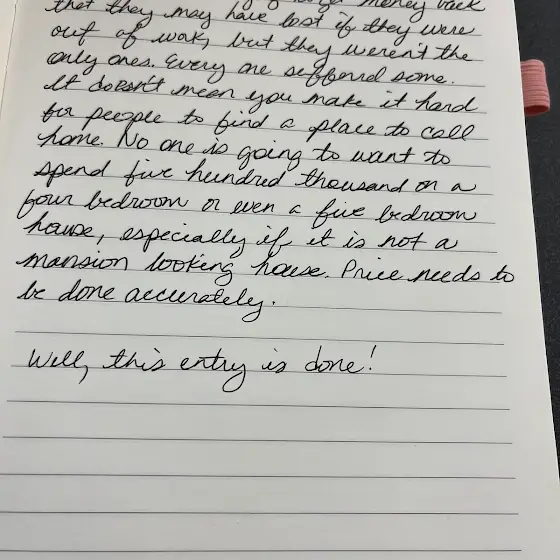 money back
that they may have lost if they were
out of work, but they weren't the
only ones. Every one suffered some.
It doesn't mean you make it hard
for people to find a place to call
home. No one is going to want to
spend five hundred thousand on a
four bedroom or even a five bedroom
house, especially if it is not a
mansion looking house. Price needs to
be done accurately.
Well, this entry is done!